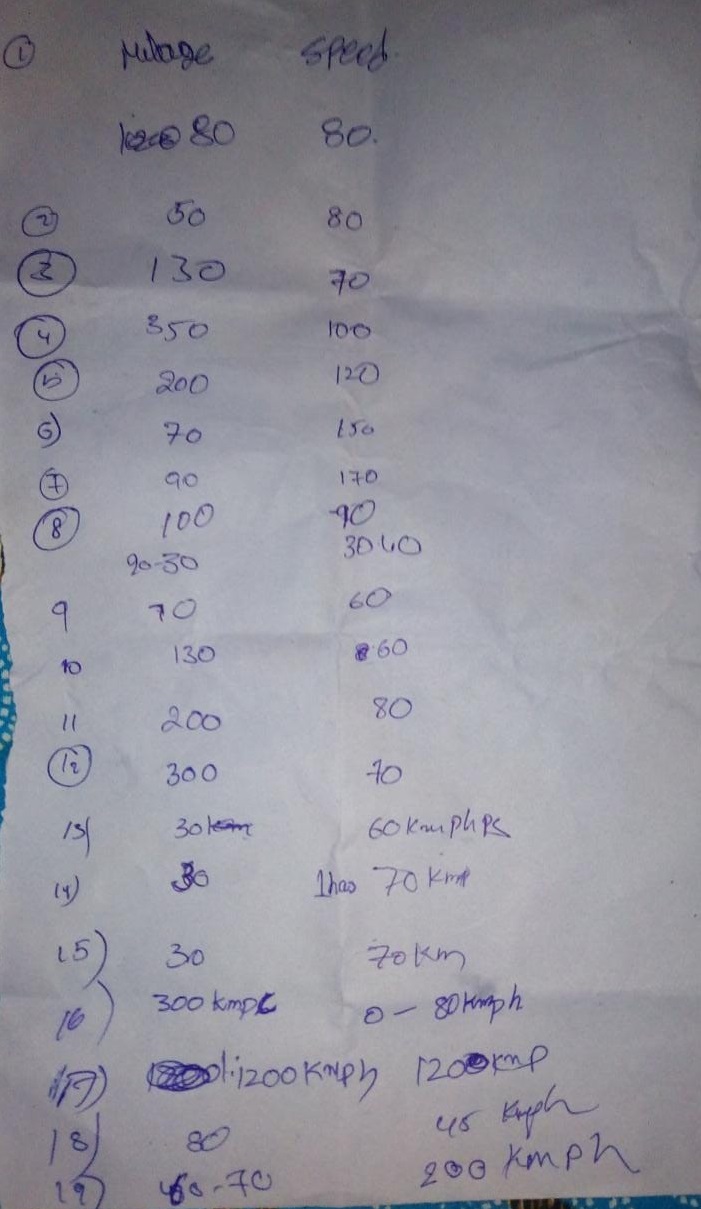 1 Milage Speed.
80 80.
2 50 80
3 130 70
4 350 100
5 200 120
6) 70 150
7 90 170
8 100 90
20-30 30 40
9 70 60
10 130 60
11 200 80
12 300 70
13) 30 60 Kmph
14) 30 70 Km
15) 30 70 Km
16) 300 kmpl 0 - 80 Kmph
17) 1200 Kmph 120 kmp
18) 80 45 Kmph
19) 60-70 200 Kmph